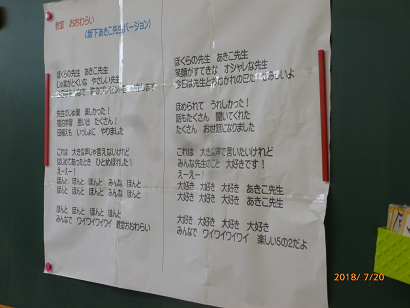 教室 おおわらい
(坂下あきこ先生バージョン)
ぼくらの先生 あきこ先生
やさしい先生
先生のじゅ業 楽しかった!
宿泊学習 思い出 たくさん!
田植えも いっしょに やりました
これは 大きな声じゃ言えないけれど
はじめてあったとき ひとめぼれした!
えーえー!
ほんと ほんと ほんと みんな ほんと
ほんと ほんと ほんと みんな ほんと
ほんと ほんと ほんと ほんと
みんなで ワイワイワイワイ 教室おおわらい
ぼくらの先生 あきこ先生
笑顔がすてきな オシャレな先生
今日は先生と
ほめられて うれしかった!
話もたくさん 聞いてくれた
たくさん お世話になりました
これは 大きな声で言いたいけれど
みんな先生のこと 大好きです!
えーえー!
大好き 大好き 大好き あきこ先生
大好き 大好き 大好き あきこ先生
大好き 大好き 大好き 大好き
みんなで ワイワイワイワイ 楽しい5の2だよ
2018/ 7/20